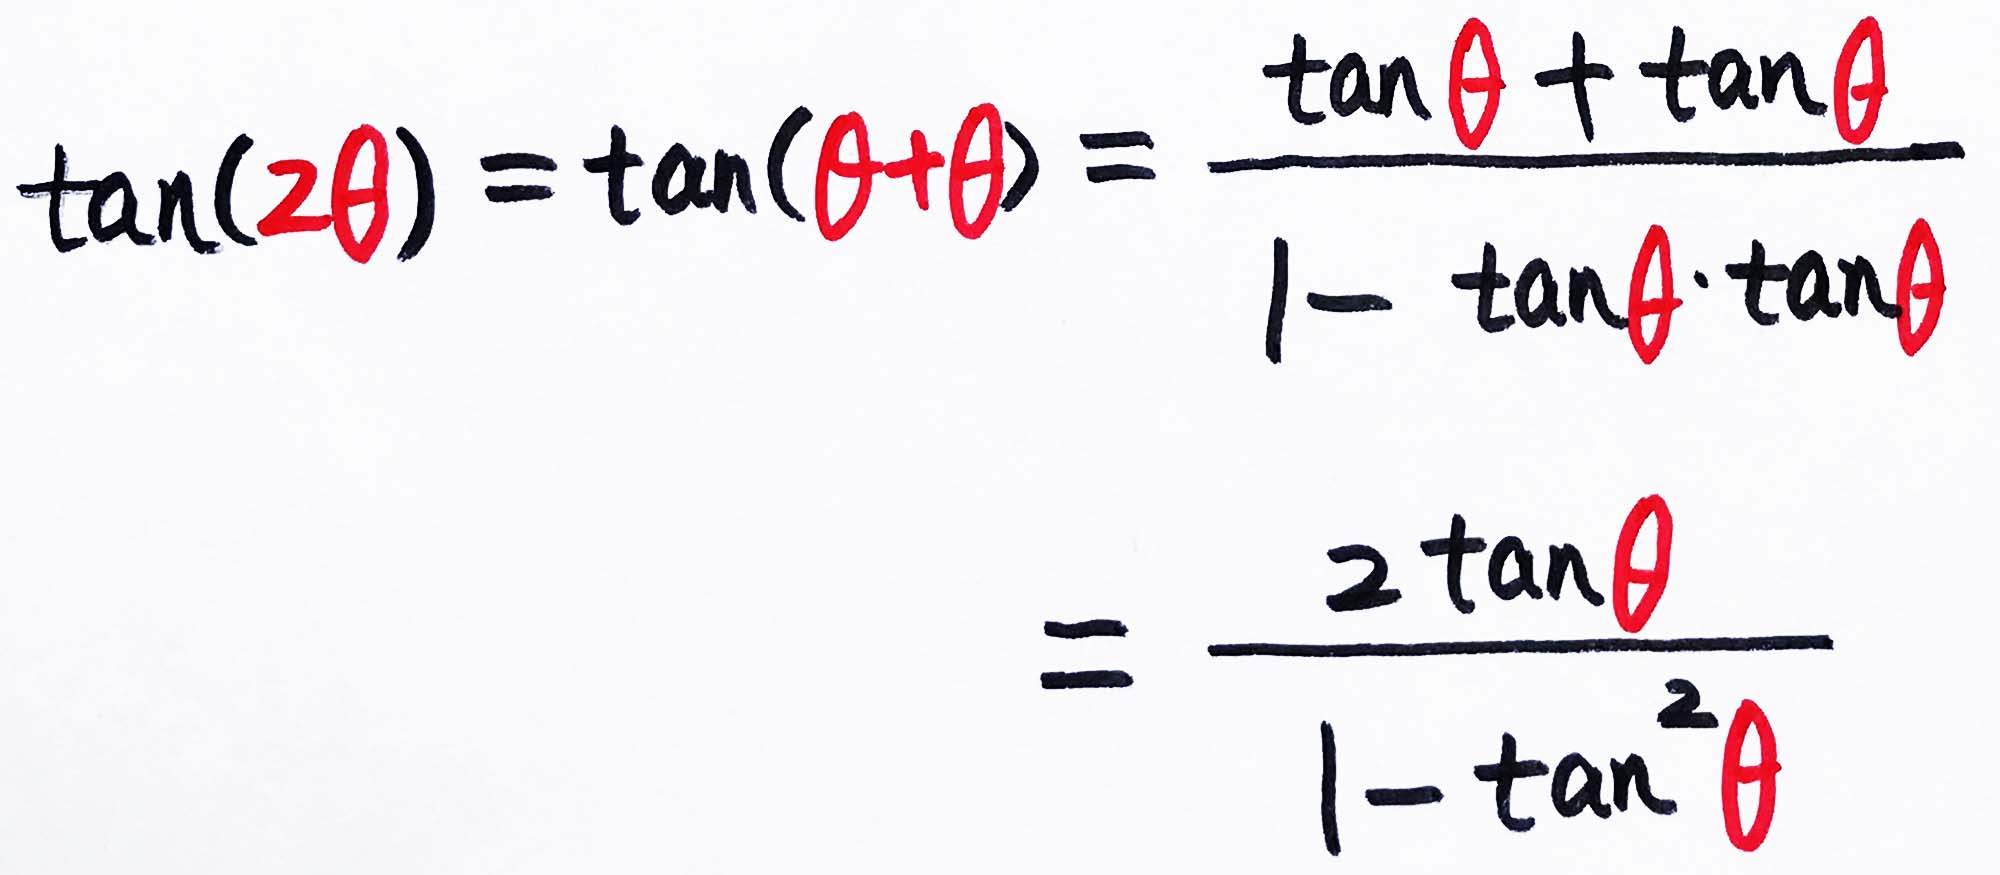 tan(2θ) = tan(θ+θ) = \frac{tanθ + tanθ}{1 - tanθ·tanθ}
= \frac{2 tanθ}{1 - tan²θ}